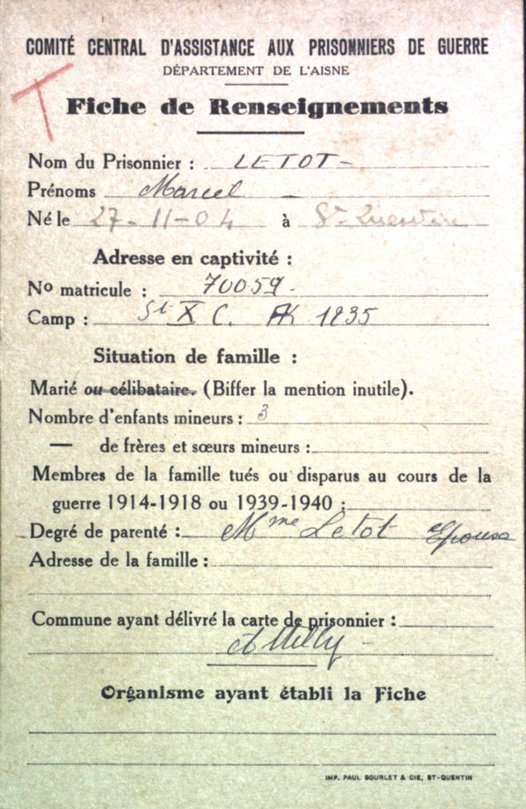 COMITÉ CENTRAL D'ASSISTANCE AUX PRISONNIERS DE GUERRE
DÉPARTEMENT DE L'AISNE
T
Fiche de Renseignements
Nom du Prisonnier : LETOT -
Prénoms Marcel -
Né le 27-11-04 à St Quentin
Adresse en captivité :
No matricule : 70059.
Camp : St X C. AK 1235
Situation de famille :
Marié ou célibataire. (Biffer la mention inutile).
Nombre d'enfants mineurs : 3
— de frères et sœurs mineurs :
Membres de la famille tués ou disparus au cours de la
guerre 1914-1918 ou 1939-1940 :
Degré de parenté : Mme Letot Epouse
Adresse de la famille :
Commune ayant délivré la carte de prisonnier :
Attilly -
Organisme ayant établi la Fiche
IMP. PAUL BOURLET & CIE, ST-QUENTIN